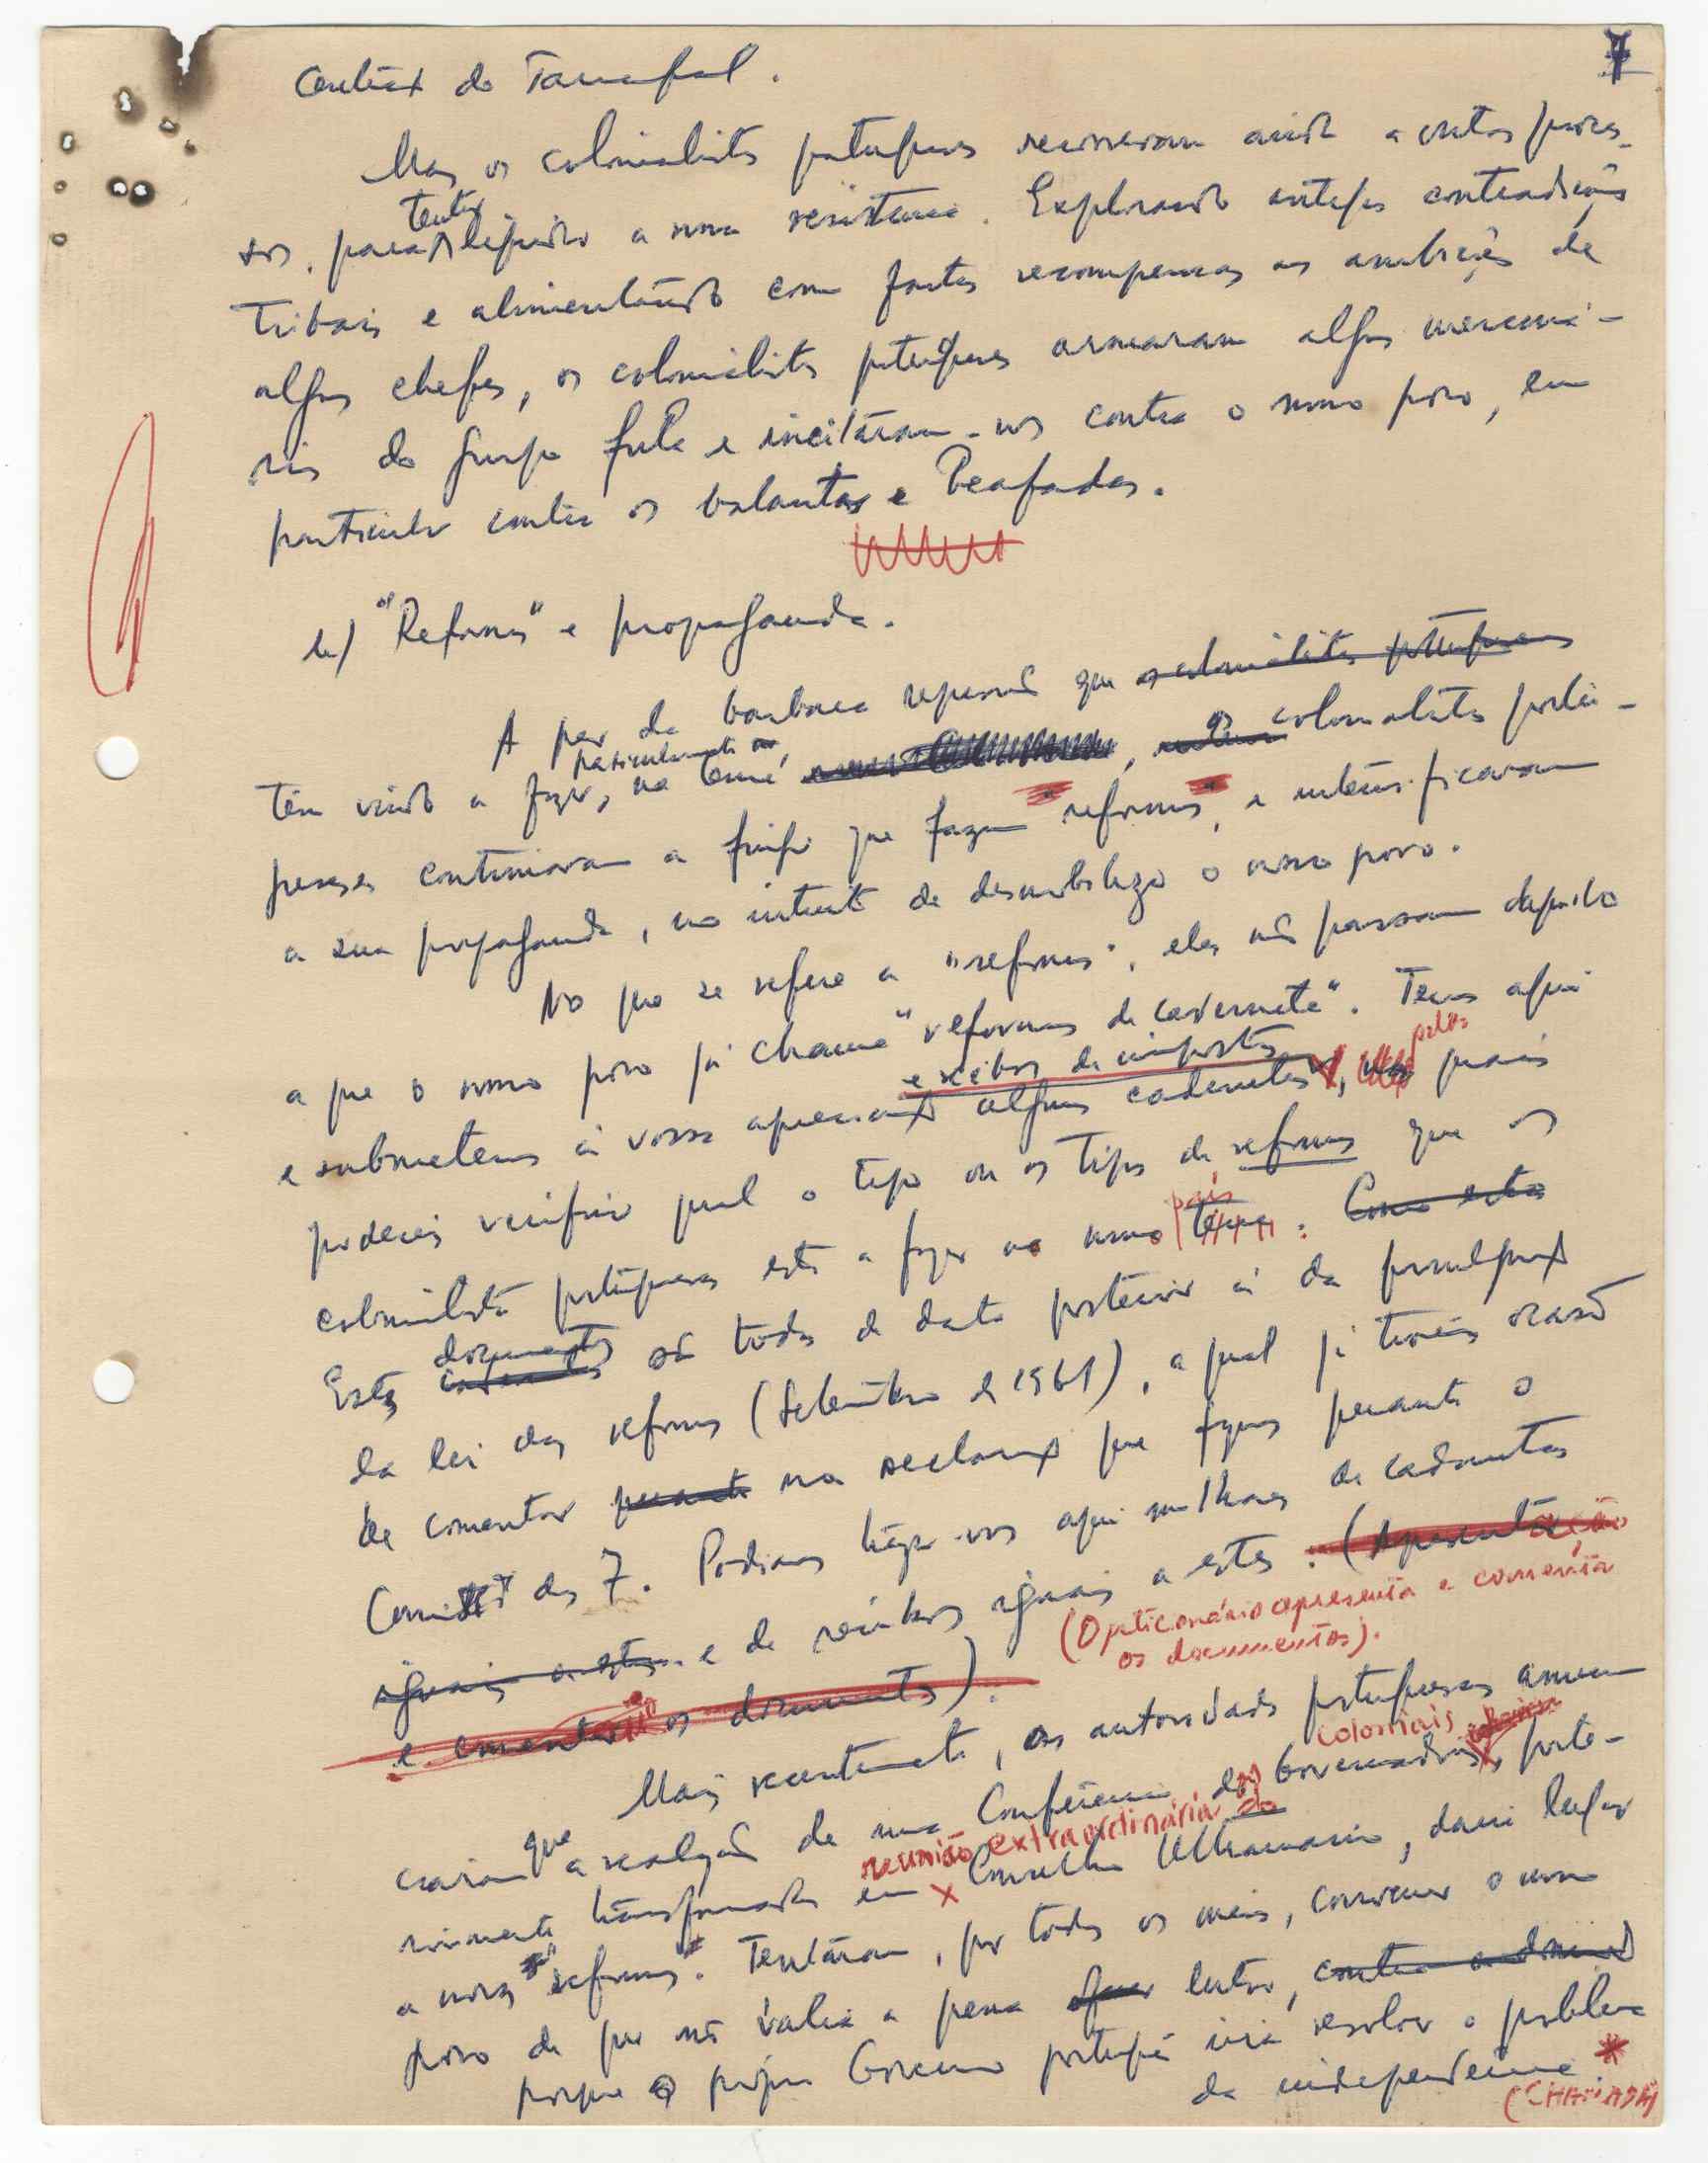 7
do Tarrafal.
Mas os colonialistas portugueses recorreram ainda a outros proces-
sos, para tentar liquidar a nossa resistência. Explorando antigas contradições
tribais e alimentando com fortes recompensas as ambições de
alguns chefes, os colonialistas portugueses armaram alguns mercená-
rios do grupo fula e incitaram-nos contra o nosso povo, em
particular contra os balantas e Beafadas.
b) "Reformas" e propaganda.
A par da barbara repressão que os colonialistas portugueses
têm vindo a fazer, na terra, os colonialistas portu-
particularmente
gueses continuaram a fingir que fazem "reformas", e intensificaram
a sua propaganda, no intuito de desmobilizar o nosso povo.
No que se refere a "reformas", elas não passam daquilo
a que o nosso povo já chama "reformas de caderneta". Temos aqui
e recibos de impostos pelos
e submetemos à vossa apreciação algumas cadernetas, quais
podereis verificar qual o tipo ou os tipos de reformas que os
país
colonialistas portugueses está a fazer no nosso : Como estas
documentos
Estes cadernetas são todos de data posterior à da promulgação
da lei das reformas (Setembro de 1961), a qual já tivemos ocasião
de comentar perante na declaração que fizemos perante o
Comité dos 7. Podiamos trazer-vos aqui milhares de cadernetas
iguais a estas e de recibos iguais a estes. (Apresentação
(O peticionário apresenta e comenta
os documentos).
e comentário os documentos).
Mais recentemente, as autoridades portuguesas anun-
coloniais
ciaram que a realização de uma Conferência dos Governadores, poste-
reunião extraordinária do
riormente transformada em Conselho Ultramarino, daria lugar
a novas "reformas". Tentaram, por todos os meios, convencer o nosso
povo de que não valia a pena lutar, contra
porque o próprio Governo português iria resolver o problema
da independência. *
(CHAMADA)